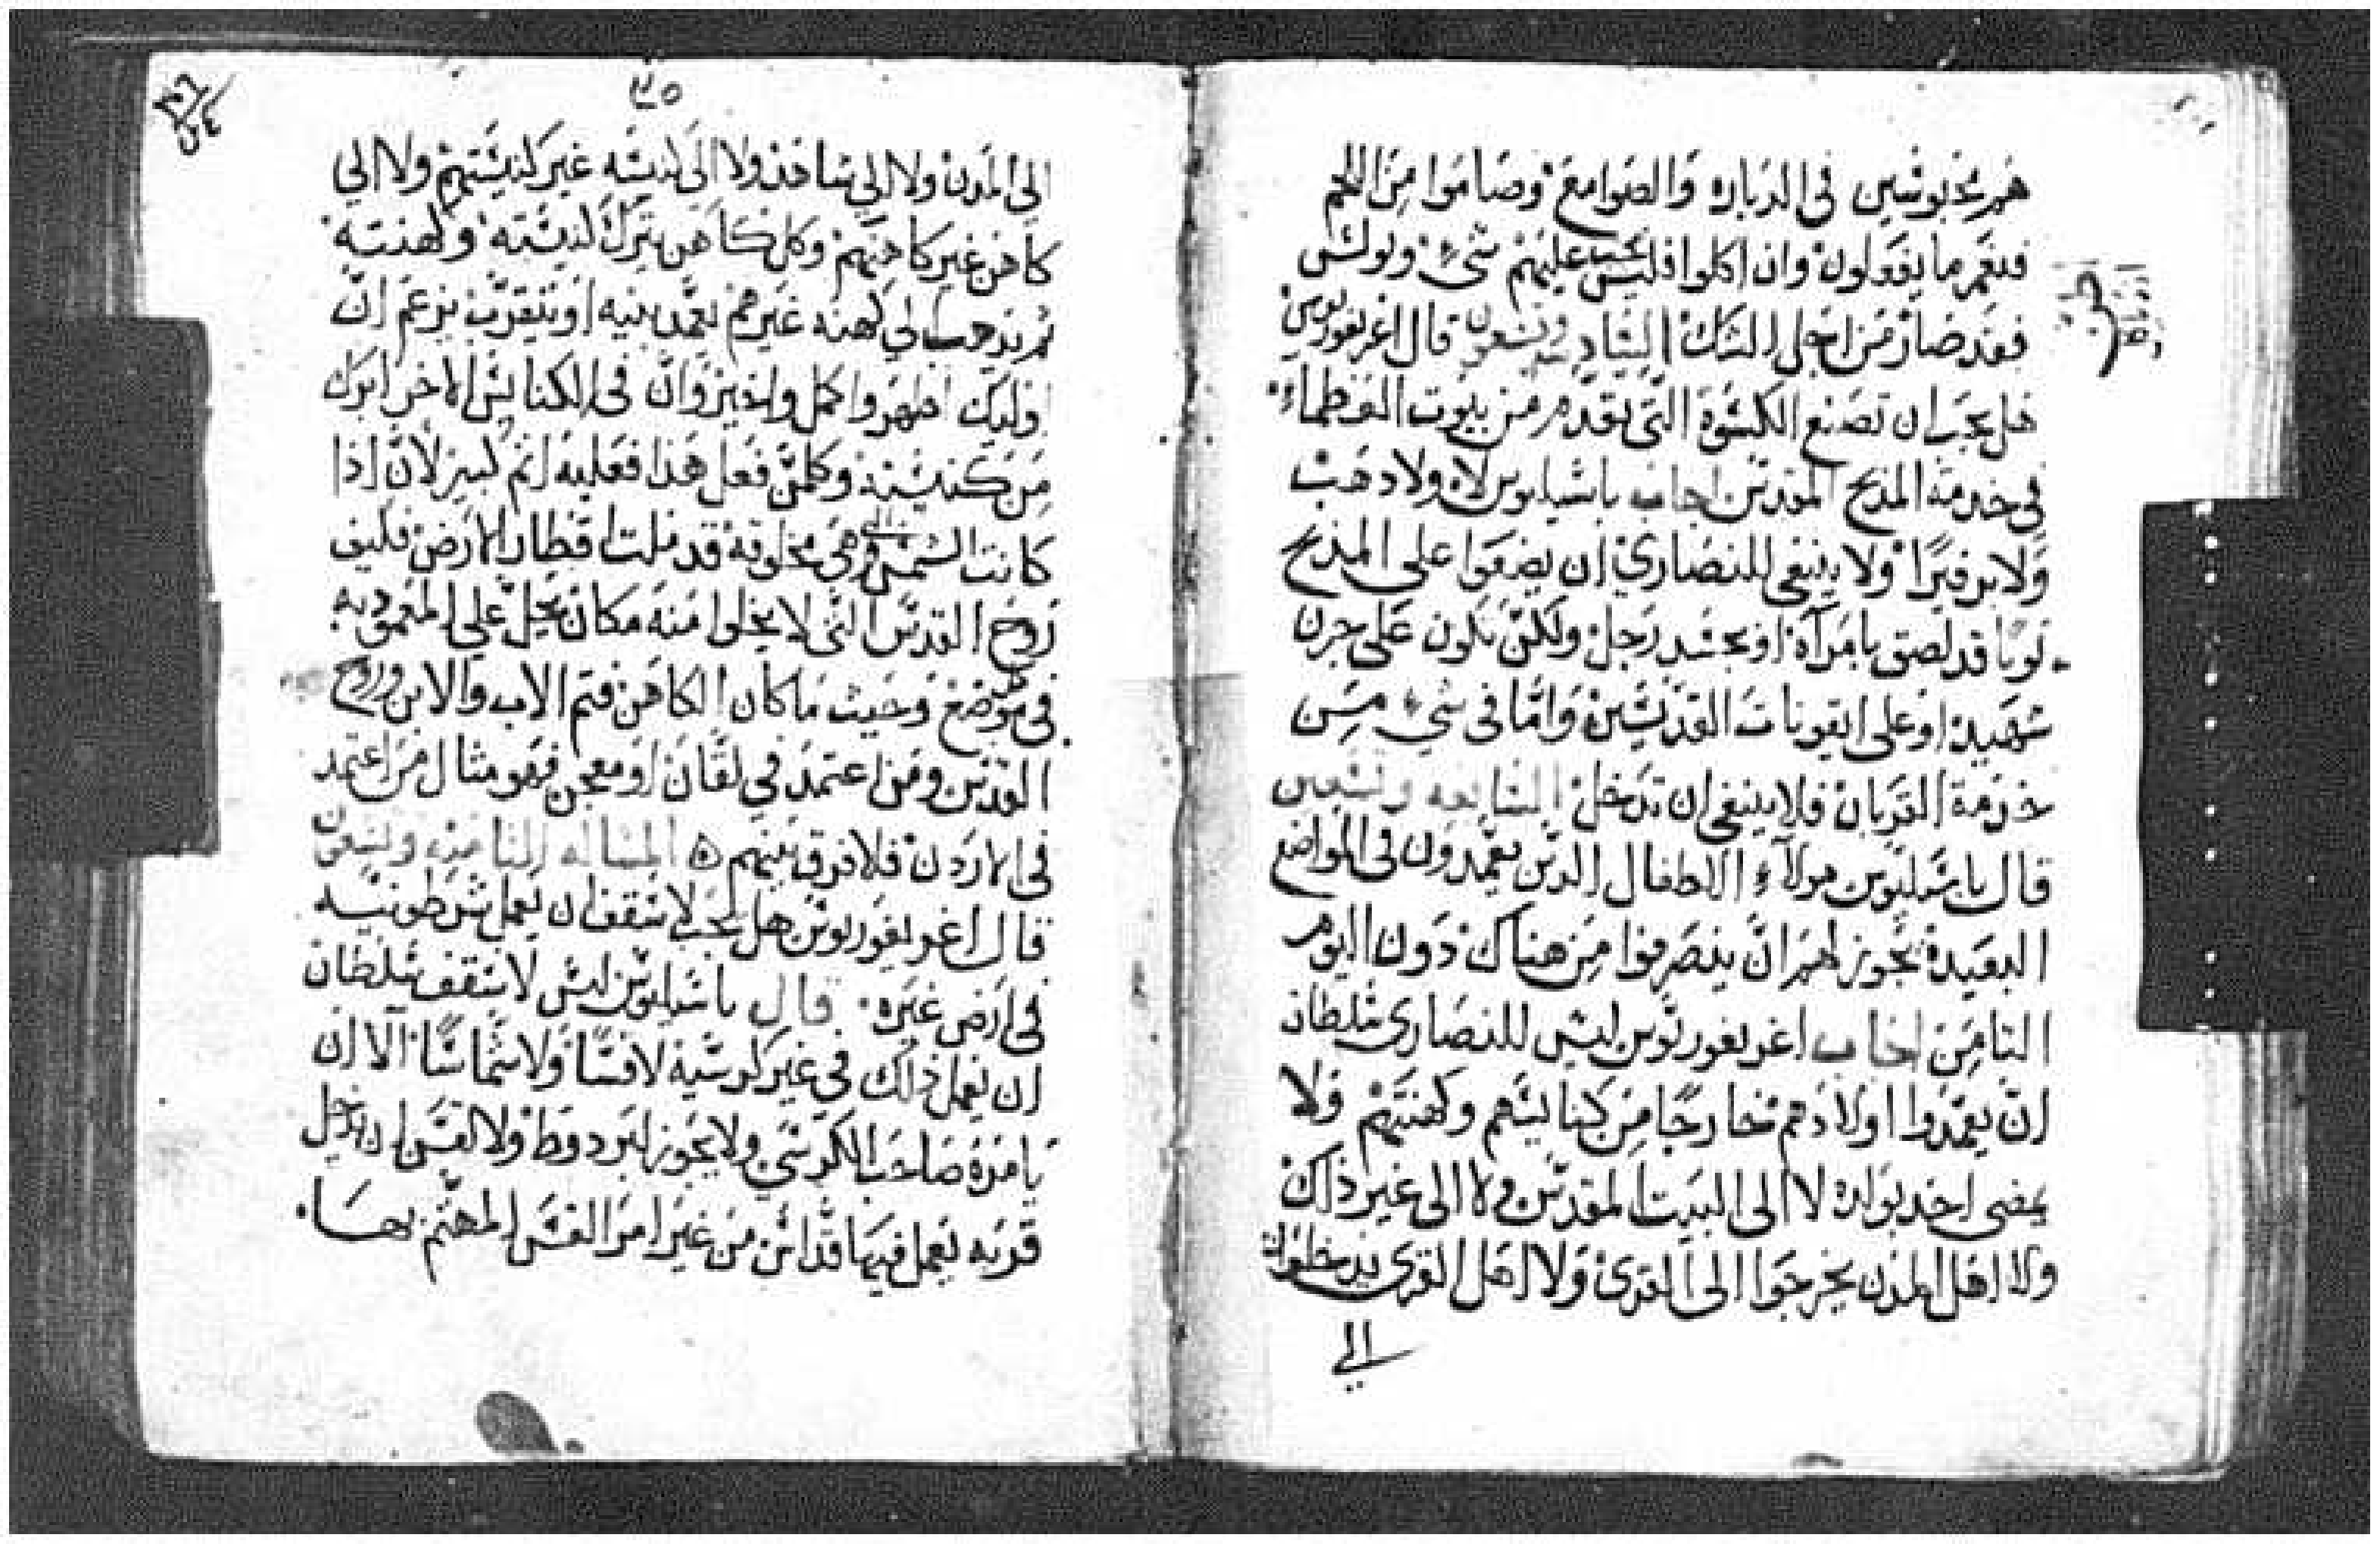 هم محبوسين في الدياره والصوامع وصاموا من اللحم
فنعم ما يفعلون وان اكلوا فليس يجب عليهم شيء وبولس
فقد صار من اجل النسك السادسه وتسعون قال اغريغوريوس
هل يجب ان تصنع الكسوة التي تقدم من بيوت العظماء
في خدمة المذبح المقدس اجاب باسيليوس لا ولا ذهب
ولا برفيرا ولا ينبغي للنصاري ان يضعوا علي المذبح
ثوبا قد لصق بامراة او بجسد رجل ولكن تكون على جرن
شهيد او على ايقونات القديسين واما في شيء من
خدمة القربان فلا ينبغي ان تدخل السابعه وتسعين
قال باسيليوس هولاء الاطفال الدين يعمدون في المواضع
البعيدة يجوز لهم ان ينصرفوا من هناك دون اليوم
الثامن اجاب اغريغوريوس ليس للنصارى سلطان
ان يعمدوا اولادهم خارجا من كنايسهم وكهنتهم ولا
يمضى احد بولده لا الى البيت المقدس ولا الى غير ذلك
ولا اهل المدن يخرجوا الى القرى ولا اهل القرى يدخلوا
الي
٣٥
الى المدن ولا الي ساهد ولا الى كنيسه غير كنيستهم ولا الي
كاهن غير كاهنهم وكل كاهن يترك كنيسته وكهنته
ثم يذهب الي كهنه غيرهم يعمد بنيه او يتقرب يزعم ان
اوليك اطهر واكمل واخير وان في الكنايس الاخر ابرك
من كنيسته وكلمن فعل هذا فعليه اثم كبير لان اذا
كانت الشمس وهي مخلوقه قد ملت اقطار الارض فكيف
روح القدس التى لا يخلوا منه مكان يحل علي المعموديه
في موضع وحيث ما كان الكاهن فتم الاب والابن وروح
القدس ومن اعتمد في لقان او معجن فهو مثال من اعتمد
في الاردن فلا فرق بينهم المساله الثامنه وتسعون
قال اغريغوريوس هل يجب لاسقف ان يعمل شرطونيه
في ارض غيره قال باسيليوس ليس لاسقف سلطان
ان يعمل ذلك في غير كرسيه لا قسا ولا شماسا الا ان
يامره صاحب الكرسي ولا يجوز لبردوط ولا لقس ان يدخل
قريه يعمل فيها قداس من غير امر القس المهتم بها